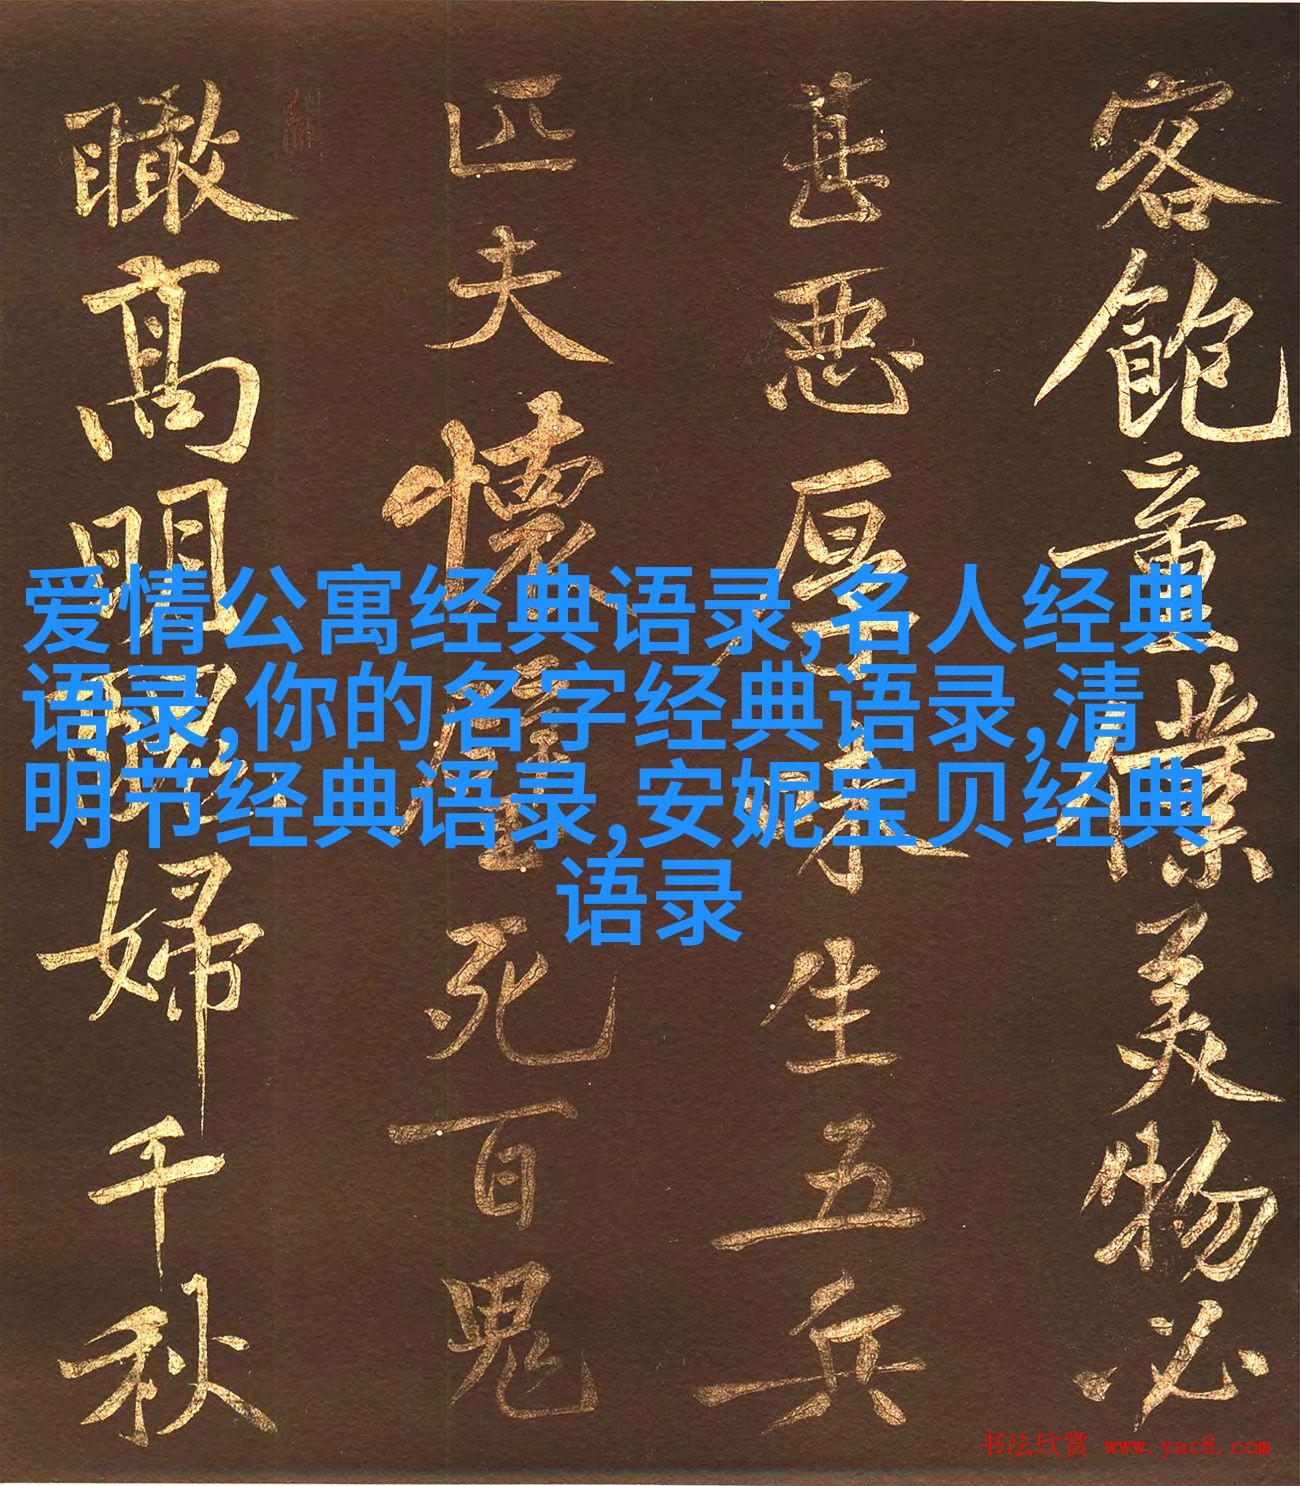 客飽童僕美物必
甚惡厚味生五兵
匹夫懷璧死百鬼
瞰高明醜婦千秋
爱情公寓经典语录,名人经典
语录,你的名字经典语录,清
明节经典语录,安妮宝贝经典
语录
书法欣赏 www.yac8.com